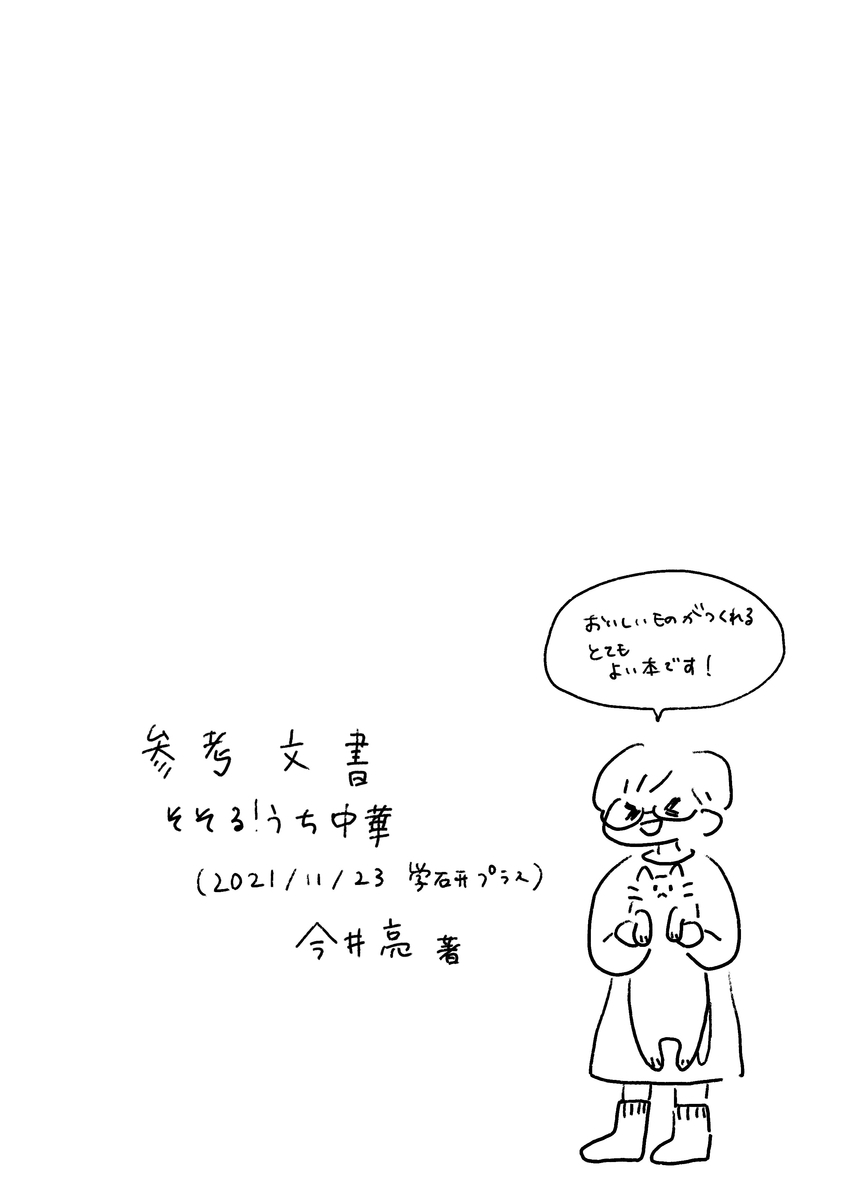 おいしいものがつくれる
とても
よい本です!
参考文書
そそる!うち中華
(2021/11/23 学研プラス)
今井亮 著